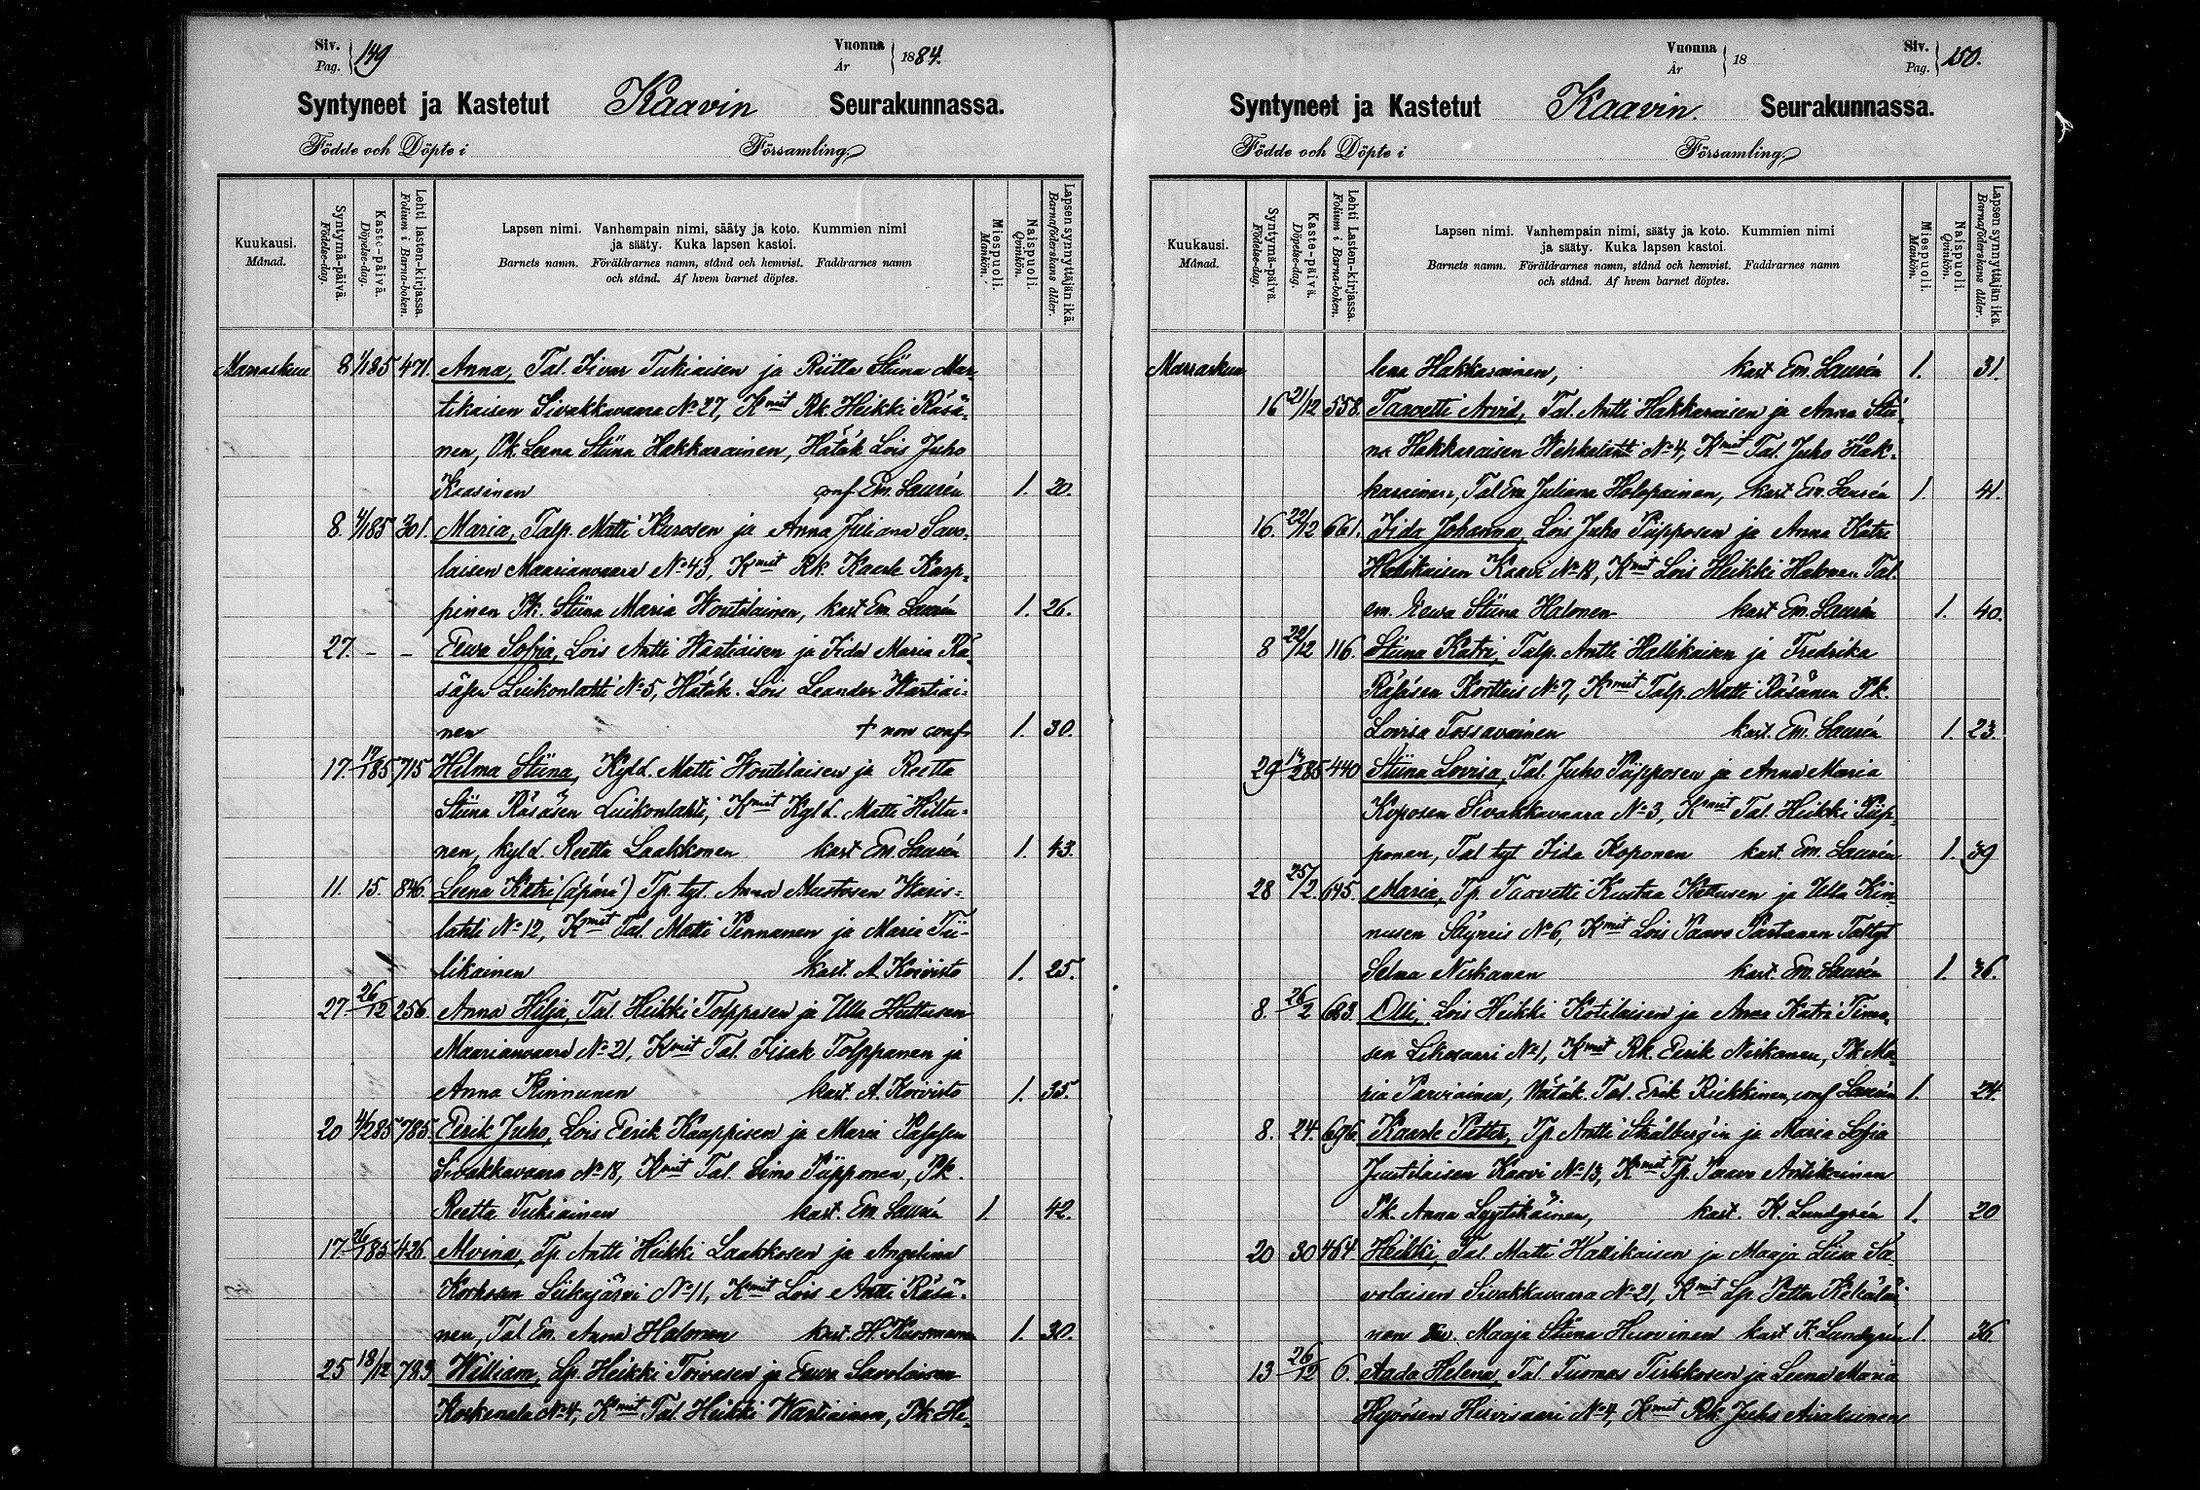 Siv. Pag. 149 Vuonna År 1884.
Syntyneet ja Kastetut Kaavin Seurakunnassa.
Födde och Döpte i Församling
Kuukausi. Månad.
Syntymä-päivä. Födelse-dag.
Kaste-päivä. Döpelse-dag.
Lehti lasten-kirjassa. Folium i Barna-boken.
Lapsen nimi. Vanhempain nimi, sääty ja koto. Kummien nimi
ja sääty. Kuka lapsen kastoi.
Barnets namn. Föräldrarnes namn, stånd och hemvist. Faddrarnes namn
och stånd. Af hvem barnet döptes.
Miespuoli. Mankön.
Naispuoli. Qvinkön.
Lapsen synnyttäjän ikä. Barnaföderskans ålder.
Marraskuu 8 1/185 471. Anna, Tal. Iivar Tukiaisen ja Riitta Stiina Mar-
tikaisen Sivakkavaara No 27, Kmit Rk. Heikki Räsä-
nen, Pk. Leena Stiina Hakkarainen, Hätäk Lois Juho
Kaasinen conf Em. Laurén 1. 20.
8. 4/185 301. Maria, Talp. Matti Kurosen ja Anna Juliana Savo-
laisen Maarianvaara No 43, Kmit Rk. Kaarle Karp-
pinen Pk. Stiina Maria Woutilainen, kast Em. Laurén 1. 26.
27. - - Eewa Sofia, Lois Antti Wartiaisen ja Iida Maria Rä-
säsen Luikonlahti No 5, Hätäk. Lois Leander Wartiai-
nen † non conf 1. 30.
17. 17/185 715 Hilma Stiina, Kyld. Matti Woutilaisen ja Reetta
Stiina Räsäsen Luikonlahti, Kmit Kyld. Matti Hiltu-
nen, kyld. Reetta Laakkonen kast Em. Laurén 1. 43.
11. 15. 846. Leena Katri (äpärä) Tp. tyt. Anna Mustosen Waris-
lahti No 12, Kmit Tal. Matti Pennanen ja Maria Tii-
likainen kast. A. Koivisto 1. 25.
27 26/12 256. Anna Hilja, Tal. Heikki Tolppasen ja Ulla Huttusen
Maarianvaara No 21, Kmit Tal. Iisak Tolppanen ja
Anna Kinnunen kast. A. Koivisto 1. 35.
20 4/285 785. Eerik Juho, Lois Eerik Kauppisen ja Maria Räsäsen
Sivakkavaara No 18, Kmit Tal. Simo Piipponen, Pk.
Reetta Tukiainen kast. Em. Laurén 1. 42.
17 26/185 426. Alvina, Tp. Antti Heikki Laakkosen ja Angelina
Korhosen Siikajärvi No 11, Kmit Lois Antti Räsä-
nen, Tal. Em. Anna Halonen kast. H. Kuosmanen 1. 30.
25 18/12 783. William, Lp. Heikki Toivasen ja Eewa Savolaisen
No 4, Kmit Tal. Heikki Wartiainen, Pk He-
Vuonna År 18 Siv. Pag. 150.
Syntyneet ja Kastetut Kaavin. Seurakunnassa.
Födde och Döpte i Församling
Kuukausi. Månad.
Syntymä-päivä. Födelse-dag.
Kaste-päivä. Döpelse-dag.
Lehti Lasten-kirjassa. Folium i Barna-boken.
Lapsen nimi. Vanhempain nimi, sääty ja koto. Kummien nimi
ja sääty. Kuka lapsen kastoi.
Barnets namn. Föräldrarnes namn, stånd och hemvist. Faddrarnes namn
och stånd. Af hvem barnet döptes.
Miespuoli. Mankön.
Naispuoli. Qvinkön.
Lapsen synnyttäjän ikä. Barnaföderskans ålder.
Marraskuu lena Hakkarainen, kast Em. Laurén 1. 31.
16 21/12 558. Taavetti Arvid, Tal. Antti Hakkaraisen ja Anna Stii-
na Hakkaraisen Wehkalahti No 4, Kmit Tal. Juho Hak-
karainen, Tal Em Juliana Holopainen, kast Em. Laurén 1. 41.
16. 22/12 661. Iida Johanna, Lois Juho Piipposen ja Anna Katri
Hallikaisen Kaavi No 18, Kmit Lois Heikki Halonen Tal.
em. Eewa Stiina Halonen kast Em. Laurén 1. 40.
8 22/12 116. Stiina Katri, Talp. Antti Hallikaisen ja Fredrika
Räsäsen Kortteis No 7, Kmit Talp. Matti Räsänen Pk.
Lovisa Tossavainen kast. Em. Laurén 1. 23.
29 440 Stiina Lovisa, Tal. Juho Piipposen ja Anna Maria
Koposen Sivakkavaara No 3, Kmit Tal. Heikki Piip-
ponen, Tal tyt Iida Koponen kast. Em. Laurén 1. 39
28 25/12. 645. Maria, Tp. Taavetti Kustaa Kettusen ja Ulla Kin-
nusen Säyneis No 6, Kmit Lois Paavo Partanen Tal tyt
Selma Niskanen kast. Em. Laurén 1. 26.
8. 26/2 663. Olli, Lois Heikki Kotilaisen ja Anna Katri Timo-
sen Likosaari No 1, Kmit Rk. Eerik Niskanen, Pk Ma-
ria Parviainen, Hätäk. Tal. Erik Riekkinen, conf Laurén 1. 24.
8. 24. 696. Kaarle Petter, Tp. Antti Strålbergin ja Maria Sofia
Juutilaisen Kaavi No 13, Kmit Tp. Paavo Antikainen
Pk. Anna Lyytikäinen, kast. K. Lundgrén 1. 20
20 30 464. Heikki, Tal. Matti Hallikaisen ja Maaja Liisa Sa-
volaisen Sivakkavaara No 21, Kmit Lp. Petter Kekäläi-
nen Maaja Stiina Huovinen kast K Lundgrén 1. 36
13 26/12 6. Aada Helena, Tal. Tuomas Pirkkosen ja Leena Maria
Hyvösen Hirvisaari No 4, Kmit Rk Juho Airaksinen